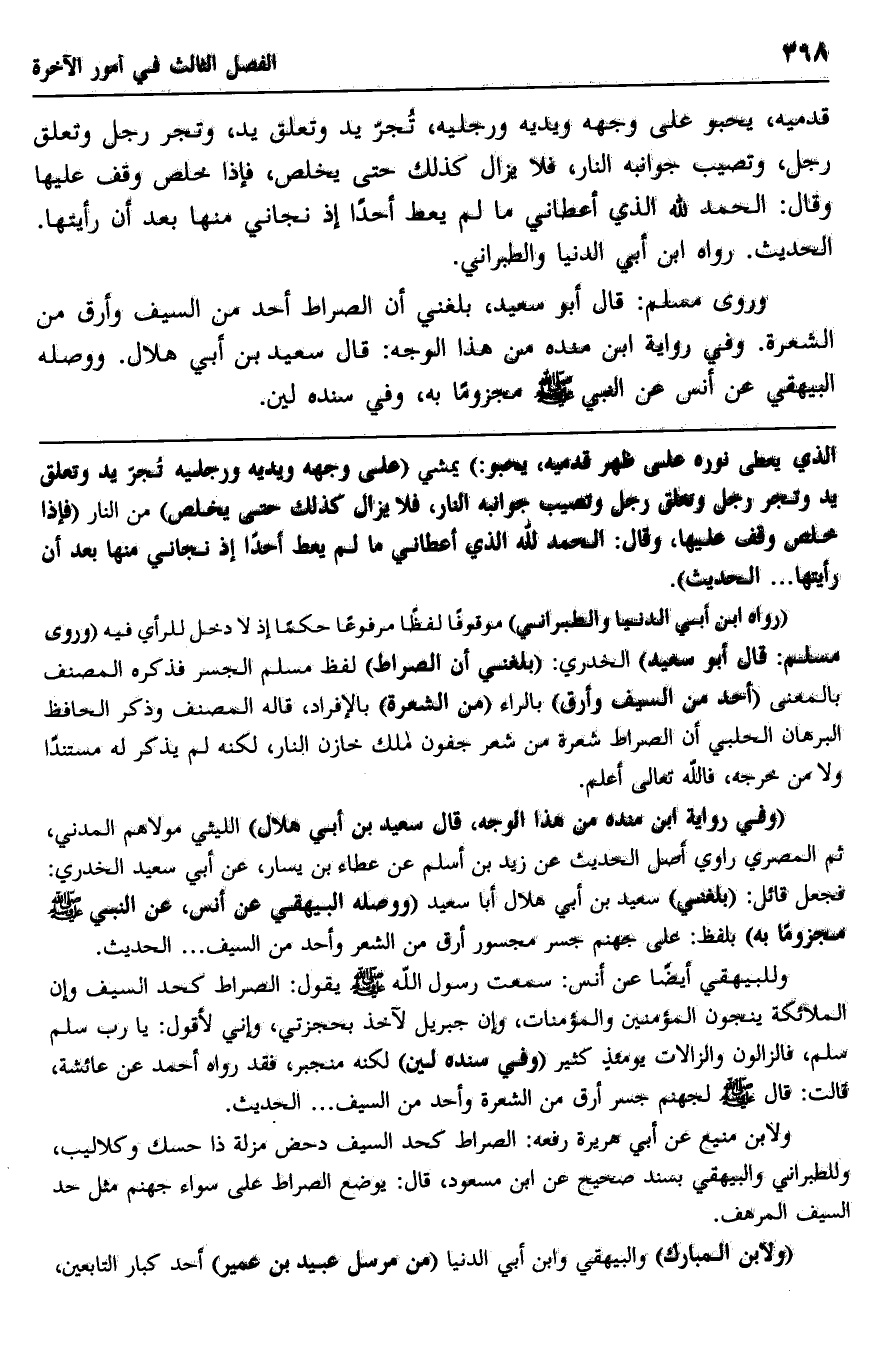 ٣٩٨
الفصل الثالث في أمور الآخرة
قدميه، يحبو على وجهه ويديه ورجليه، تُجرّ يد وتعلق يد، وتجر رجل وتعلق
رجل، وتصيب جوانبه النار، فلا يزال كذلك حتى يخلص، فإذا خلص وقف عليها
وقال: الحمد لله الذي أعطاني ما لم يعط أحدًا إذ نجاني منها بعد أن رأيتها.
الحديث. رواه ابن أبي الدنيا والطبراني.
وروى مسلم: قال أبو سعيد، بلغني أن الصراط أحد من السيف وأرق من
الشعرة. وفي رواية ابن منده من هذا الوجه: قال سعيد بن أبي هلال. ووصله
البيهقي عن أنس عن النبي ﷺ مجزومًا به، وفي سنده لين.
الذي يعطى نوره على ظهر قدميه، يحبو:) يمشي (على وجهه ويديه ورجليه تُجرّ يد وتعلق
يد وتجر رجل وتعلق رجل وتصيب جوانبه النار، فلا يزال كذلك حتى يخلص) من النار (فإذا
خلص وقف عليها، وقال: الحمد لله الذي أعطاني ما لم يعط أحدًا إذ نجاني منها بعد أن
رأيتها... الحديث).
(رواه ابن أبي الدنيا والطبراني) موقوفًا لفظًا مرفوعًا حكمًا إذ لا دخل للرأي فيه (وروى
مسلم: قال أبو سعيد) الخدري: (بلغني أن الصراط) لفظ مسلم الجسر فذكره المصنف
بالمعنى (أحد من السيف وأرق) بالراء (من الشعرة) بالإفراد، قاله المصنف وذكر الحافظ
البرهان الحلبي أن الصراط شعرة من شعر جفون لملك خازن النار، لكنه لم يذكر له مستندًا
ولا من خرجه، فالله تعالى أعلم.
(وفي رواية ابن منده من هذا الوجه، قال سعيد بن أبي هلال) الليثي مولاهم المدني،
ثم المصري راوي أصل الحديث عن زيد بن أسلم عن عطاء بن يسار، عن أبي سعيد الخدري:
فجعل قائل: (بلغني) سعيد بن أبي هلال أبا سعيد (ووصله البيهقي عن أنس، عن النبي ﷺ
مجزومًا به) بلفظ: على جهنم جسر مجسور أرق من الشعر وأحد من السيف... الحديث.
وللبيهقي أيضًا عن أنس: سمعت رسول الله ﷺ يقول: الصراط كحد السيف وإن
الملائكة ينجون المؤمنين والمؤمنات، وإن جبريل لآخذ بحجزتي، وإني لأقول: يا رب سلم
سلم، فالزالون والزالات يومئذٍ كثير (وفي سنده لين) لكنه منجبر، فقد رواه أحمد عن عائشة،
قالت: قال ﷺ لجهنم جسر أرق من الشعرة وأحد من السيف... الحديث.
ولابن منيع عن أبي هريرة رفعه: الصراط كحد السيف دحض مزلة ذا حسك وكلاليب،
وللطبراني والبيهقي بسند صحيح عن ابن مسعود، قال: يوضع الصراط على سواء جهنم مثل حد
السيف المرهف.
(ولابن المبارك) والبيهقي وابن أبي الدنيا (من مرسل عبيد بن عمير) أحد كبار التابعين،